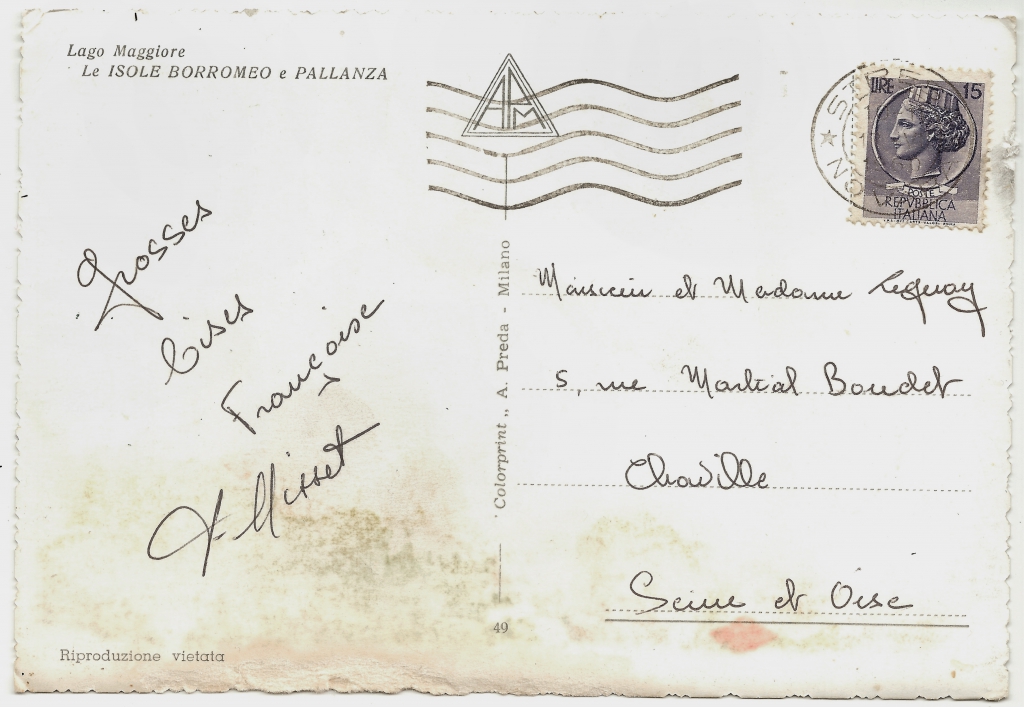 Lago Maggiore
Le ISOLE BORROMEO e PALLANZA
Grosses
bises
Françoise
Misset
Riproduzione vietata
Colorprint „ A. Preda - Milano
49
LIRE 15
POSTE
REPVBBLICA
ITALIANA
Monsieur et Madame Lequay
5, rue Martial Boudet
Chaville
Seine et Oise